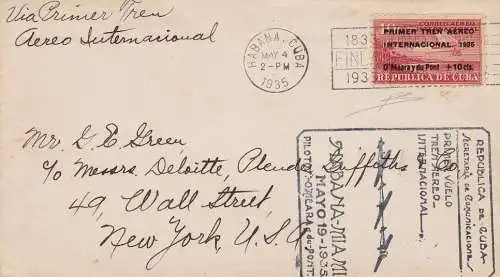 Via Primer Tren
Aereo Internacional
HABANA, CUBA
MAY 4
2-PM
1935
1833
FINL
193
CORREO AEREO
PRIMER TREN AEREO
INTERNACIONAL. 1935
O'Meara y du Pont +10 cts.
REPUBLICA DE CUBA
Mr. G. E. Green
c/o Messrs. Deloitte, Plender, Griffiths & Co,
49, Wall Street,
New York, U.S.A.
REPUBLICA DE CUBA
SECRETARIA DE COMUNICACIONES
PRIMER VUELO
TREN AEREO
INTERNACIONAL
HABANA-MIAMI
MAYO 19-1935
PILOTOS: O'MEARA & du PONT